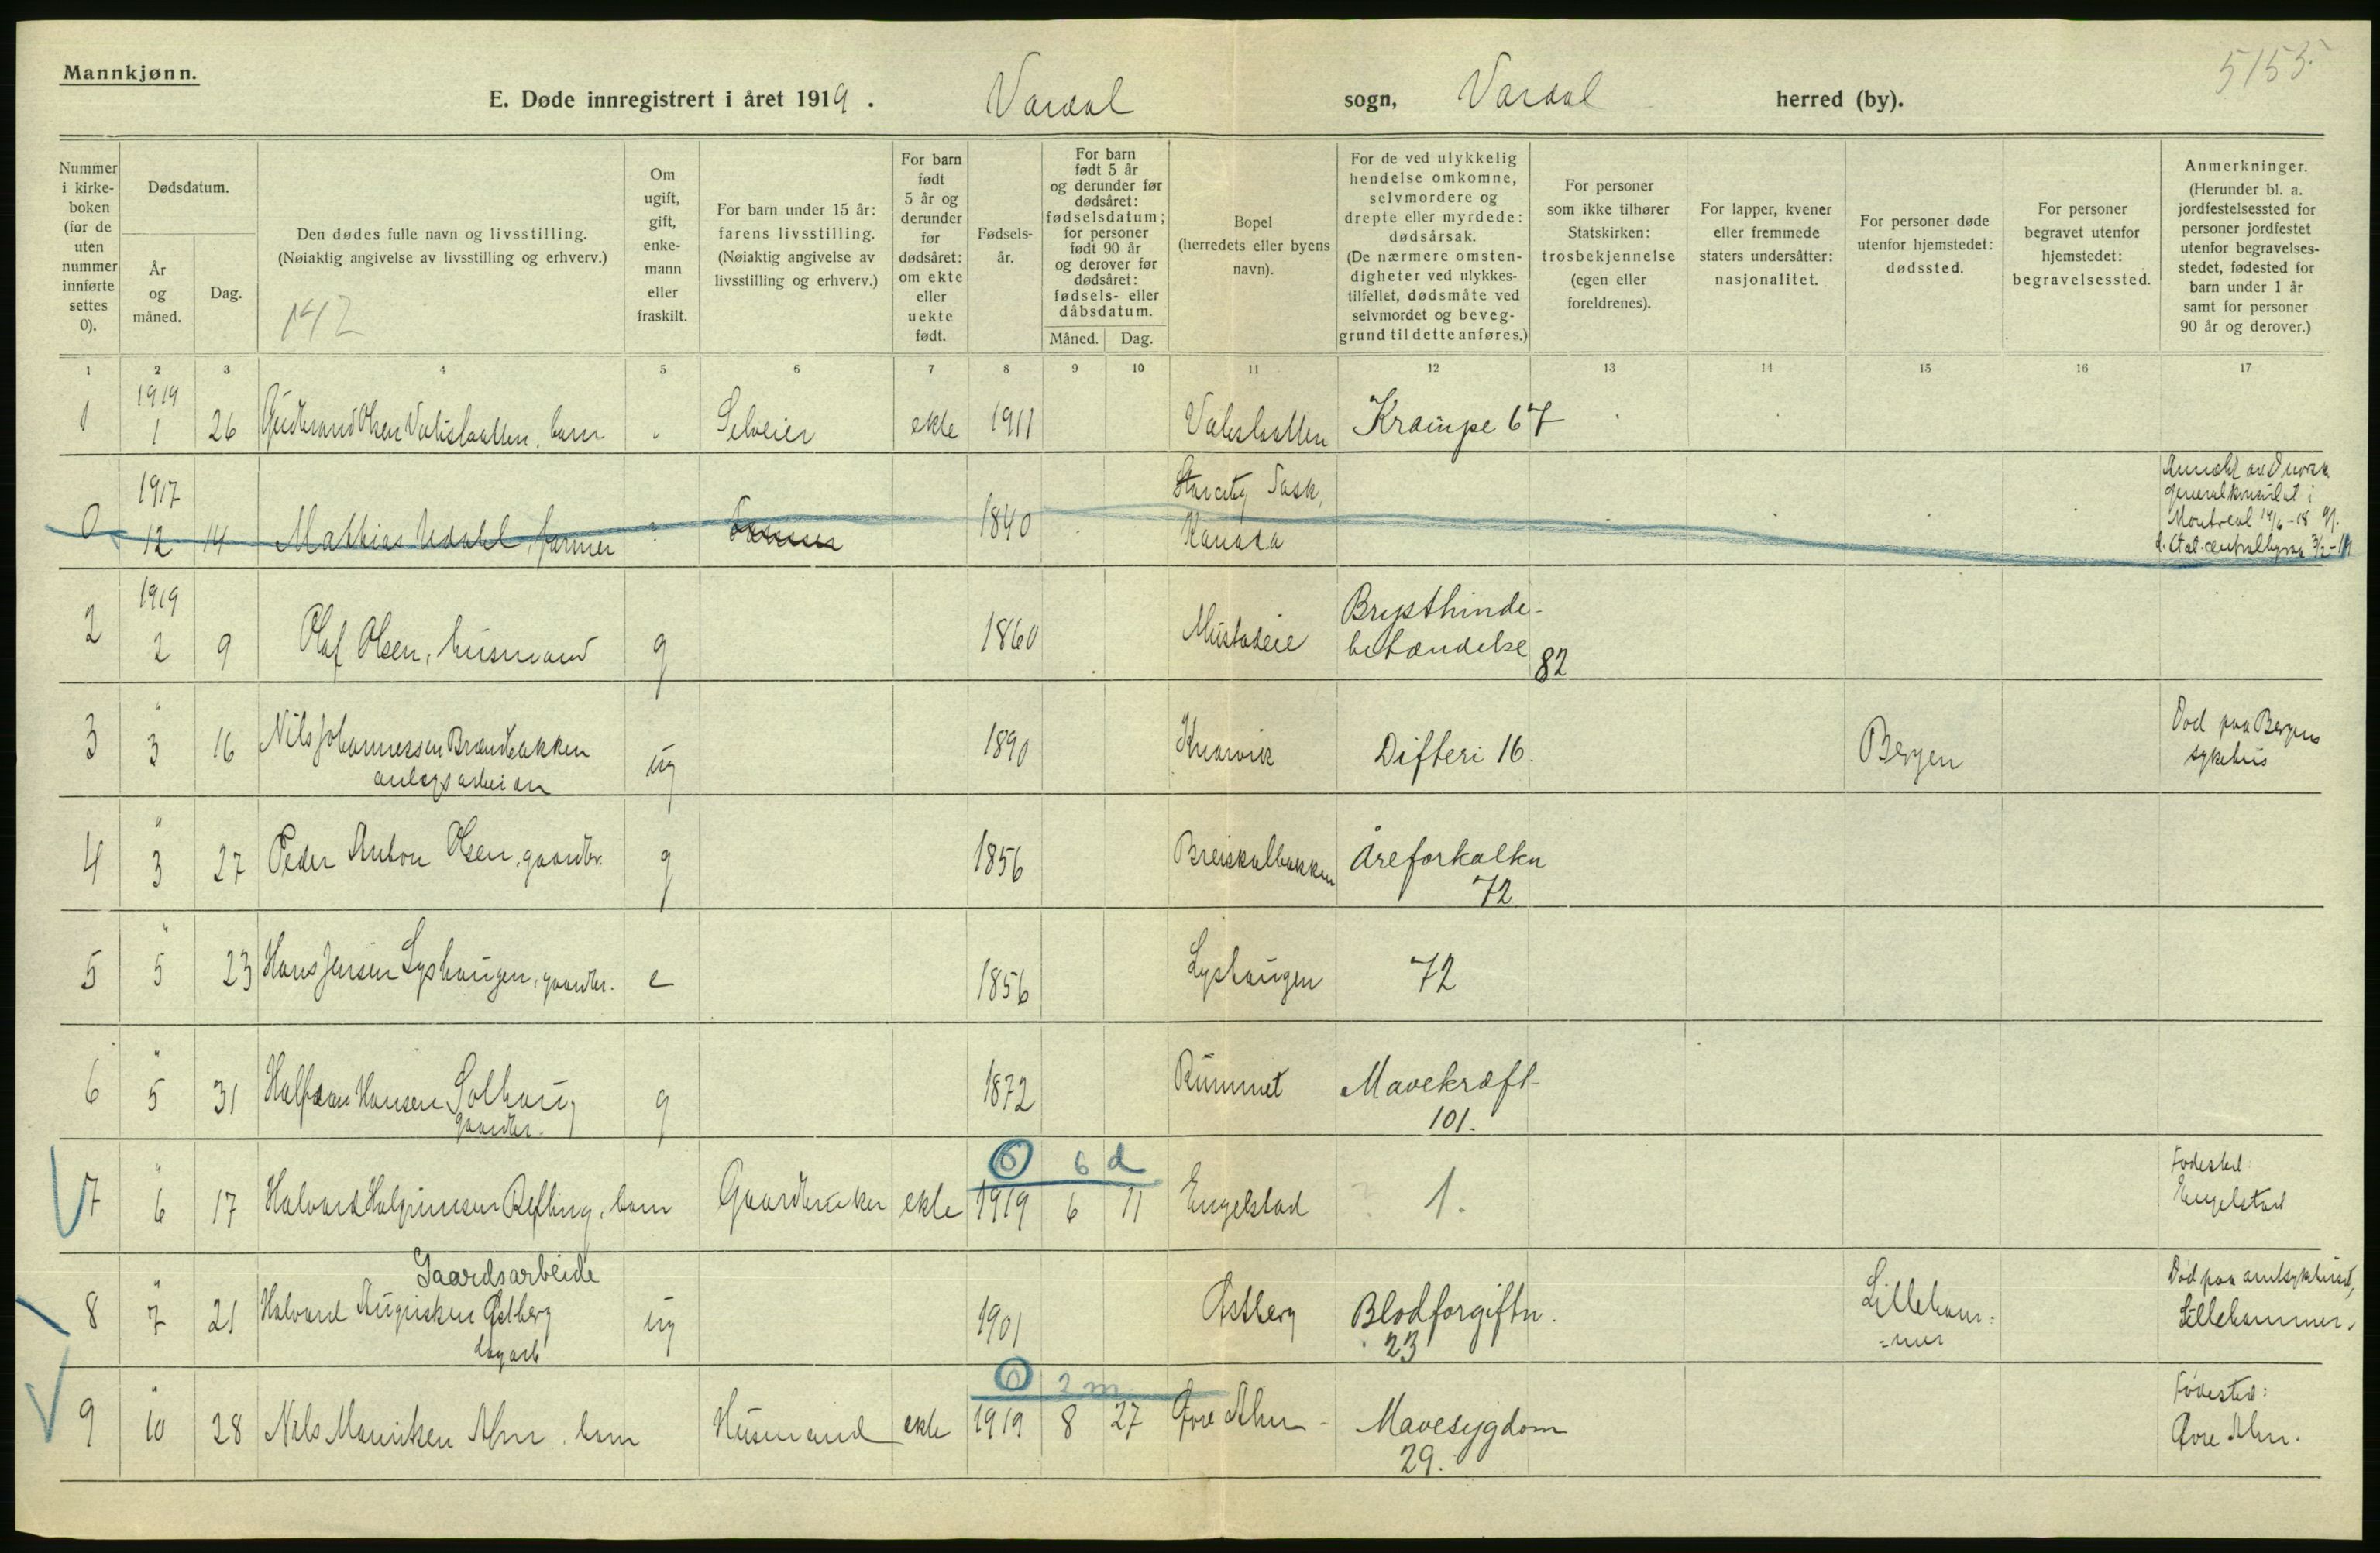 Mannkjønn.
5155
E. Døde innregistrert i året 1919. Vardal sogn, Vardal herred (by).
Nummer i kirke-boken (for de uten nummer innførte settes 0).
Dødsdatum.
År og måned.
Dag.
Den dødes fulle navn og livsstilling.
(Nøiaktig angivelse av livsstilling og erhverv.)
142
Om ugift, gift, enke-mann eller fraskilt.
For barn under 15 år: farens livsstilling. (Nøiaktig angivelse av livsstilling og erhverv.)
For barn født 5 år og derunder før dødsåret: om ekte eller uekte født.
Fødsels-år.
For barn født 5 år og derunder før dødsåret: fødselsdatum; for personer født 90 år og derover før dødsåret: fødsels- eller dåbsdatum.
Måned. Dag.
Bopel (herredets eller byens navn).
For de ved ulykkelig hendelse omkomne, selvmordere og drepte eller myrdede: dødsårsak. (De nærmere omsten-digheter ved ulykkes-tilfellet, dødsmåte ved selvmordet og beveg-grund til dette anføres.)
For personer som ikke tilhører Statskirken: trosbekjennelse (egen eller foreldrenes).
For lapper, kvener eller fremmede staters undersåtter: nasjonalitet.
For personer døde utenfor hjemstedet: dødssted.
For personer begravet utenfor hjemstedet: begravelsessted.
Anmerkninger. (Herunder bl. a. jordfestelsessted for personer jordfestet utenfor begravelses-stedet, fødested for barn under 1 år samt for personer 90 år og derover.)
1 2 3 4 5 6 7 8 9 10 11 12 13 14 15 16 17
1919
1 1 26 Gudbrand Olsen barn Selveier ekte 1911 Krampe 67
1917
0 12 14 Mathias farmer Farmer 1840 Sask, Kanada
generalkonsulat i
Montreal 14/6-18
2 1919 2 9 Olaf Olsen, husmand g 1860 Mustadeie Brysthinde-
betændelse 82
3 " 3 16 Nils Johannessen Brændbakken ug 1890 Knarvik Difteri 16. Bergen Død paa Bergens
sykehus
4 " 3 27 Peder Anton Olsen, gaardbr. g 1856 Breiskalbakken Åreforkalkn
72
5 " 5 23 Hans Jensen Lyshaugen, gaardbr. e 1856 Lyshaugen 72
6 " 5 31 Halfdan Hansen Solhaug g 1872 Rummet Mavekræft
gaardbr. 101.
0 6 d
7 " 6 17 barn Gaardbruker ekte 1919 6 11 Engelstad 1. Fødested
Engelstad
Gaardsarbeide
8 " 7 21 Halvard Østberg ug 1901 Østberg Blodforgiftn. Lilleham-
dagarb 23 =mer
Død paa amtsykehuset,
Lillehammer.
0 2 m
9 " 10 28 Nils Alm barn Husmand ekte 1919 8 27 Øvre Alm Mavesygdom
29. Fødested:
Øvre Alm.